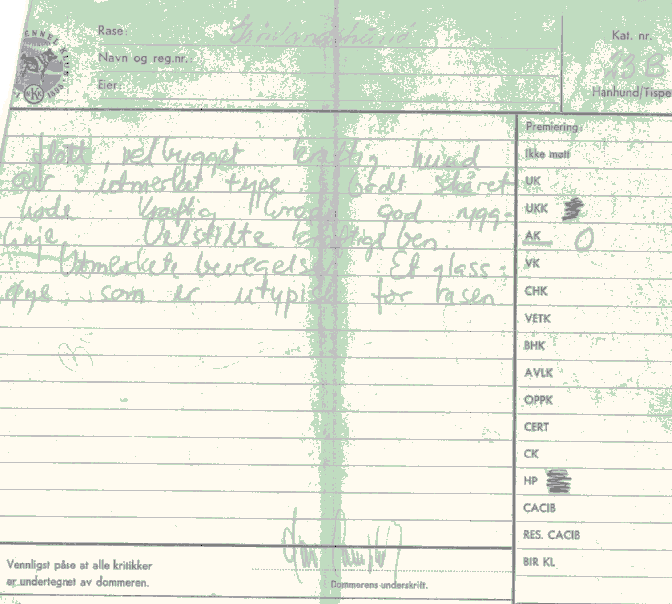 NNEL KLUB
1898
NKK
Rase: Grønlandshund
Kat. nr.
Navn og reg.nr.
23 B
Eier:
Hanhund/Tispe
flott, velbygget kraftig hund
av utmerket type. Godt skåret
hode. Kraftig kropp, god rygg-
linje. Velstilte kraftige ben.
Utmerkete bevegelser. Et glass-
øye som er utypisk for rasen
Premiering:
Ikke møtt
UK
UKK
AK 0
VK
CHK
VETK
BHK
AVLK
OPPK
CERT
CK
HP
CACIB
RES. CACIB
BIR KL
Vennligst påse at alle kritikker
er undertegnet av dommeren.
Dommerens underskrift.